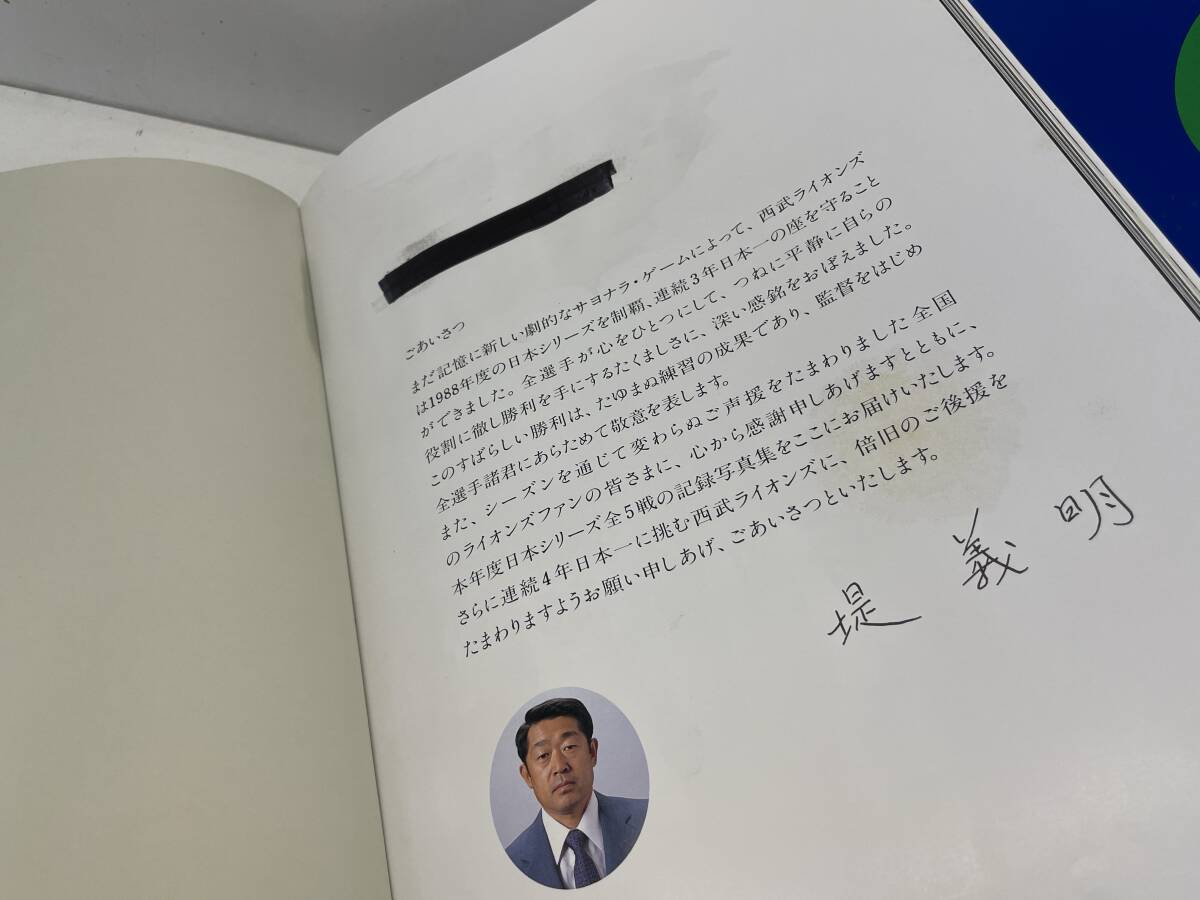 ごあいさつ
まだ記憶に新しい劇的なサヨナラ・ゲームによって、西武ライオンズ
は1988年度の日本シリーズを制覇、連続3年日本一の座を守ること
ができました。全選手が心をひとつにして、つねに平静に自らの
役割に徹し勝利を手にするたくましさに、深い感銘をおぼえました。
このすばらしい勝利は、たゆまぬ練習の成果であり、監督をはじめ
全選手諸君にあらためて敬意を表します。
また、シーズンを通じて変わらぬご声援をたまわりました全国
のライオンズファンの皆さまに、心から感謝申しあげますとともに、
本年度日本シリーズ全5戦の記録写真集をここにお届けいたします。
さらに連続4年日本一に挑む西武ライオンズに、倍旧のご後援を
たまわりますようお願い申しあげ、ごあいさつといたします。
堤義明